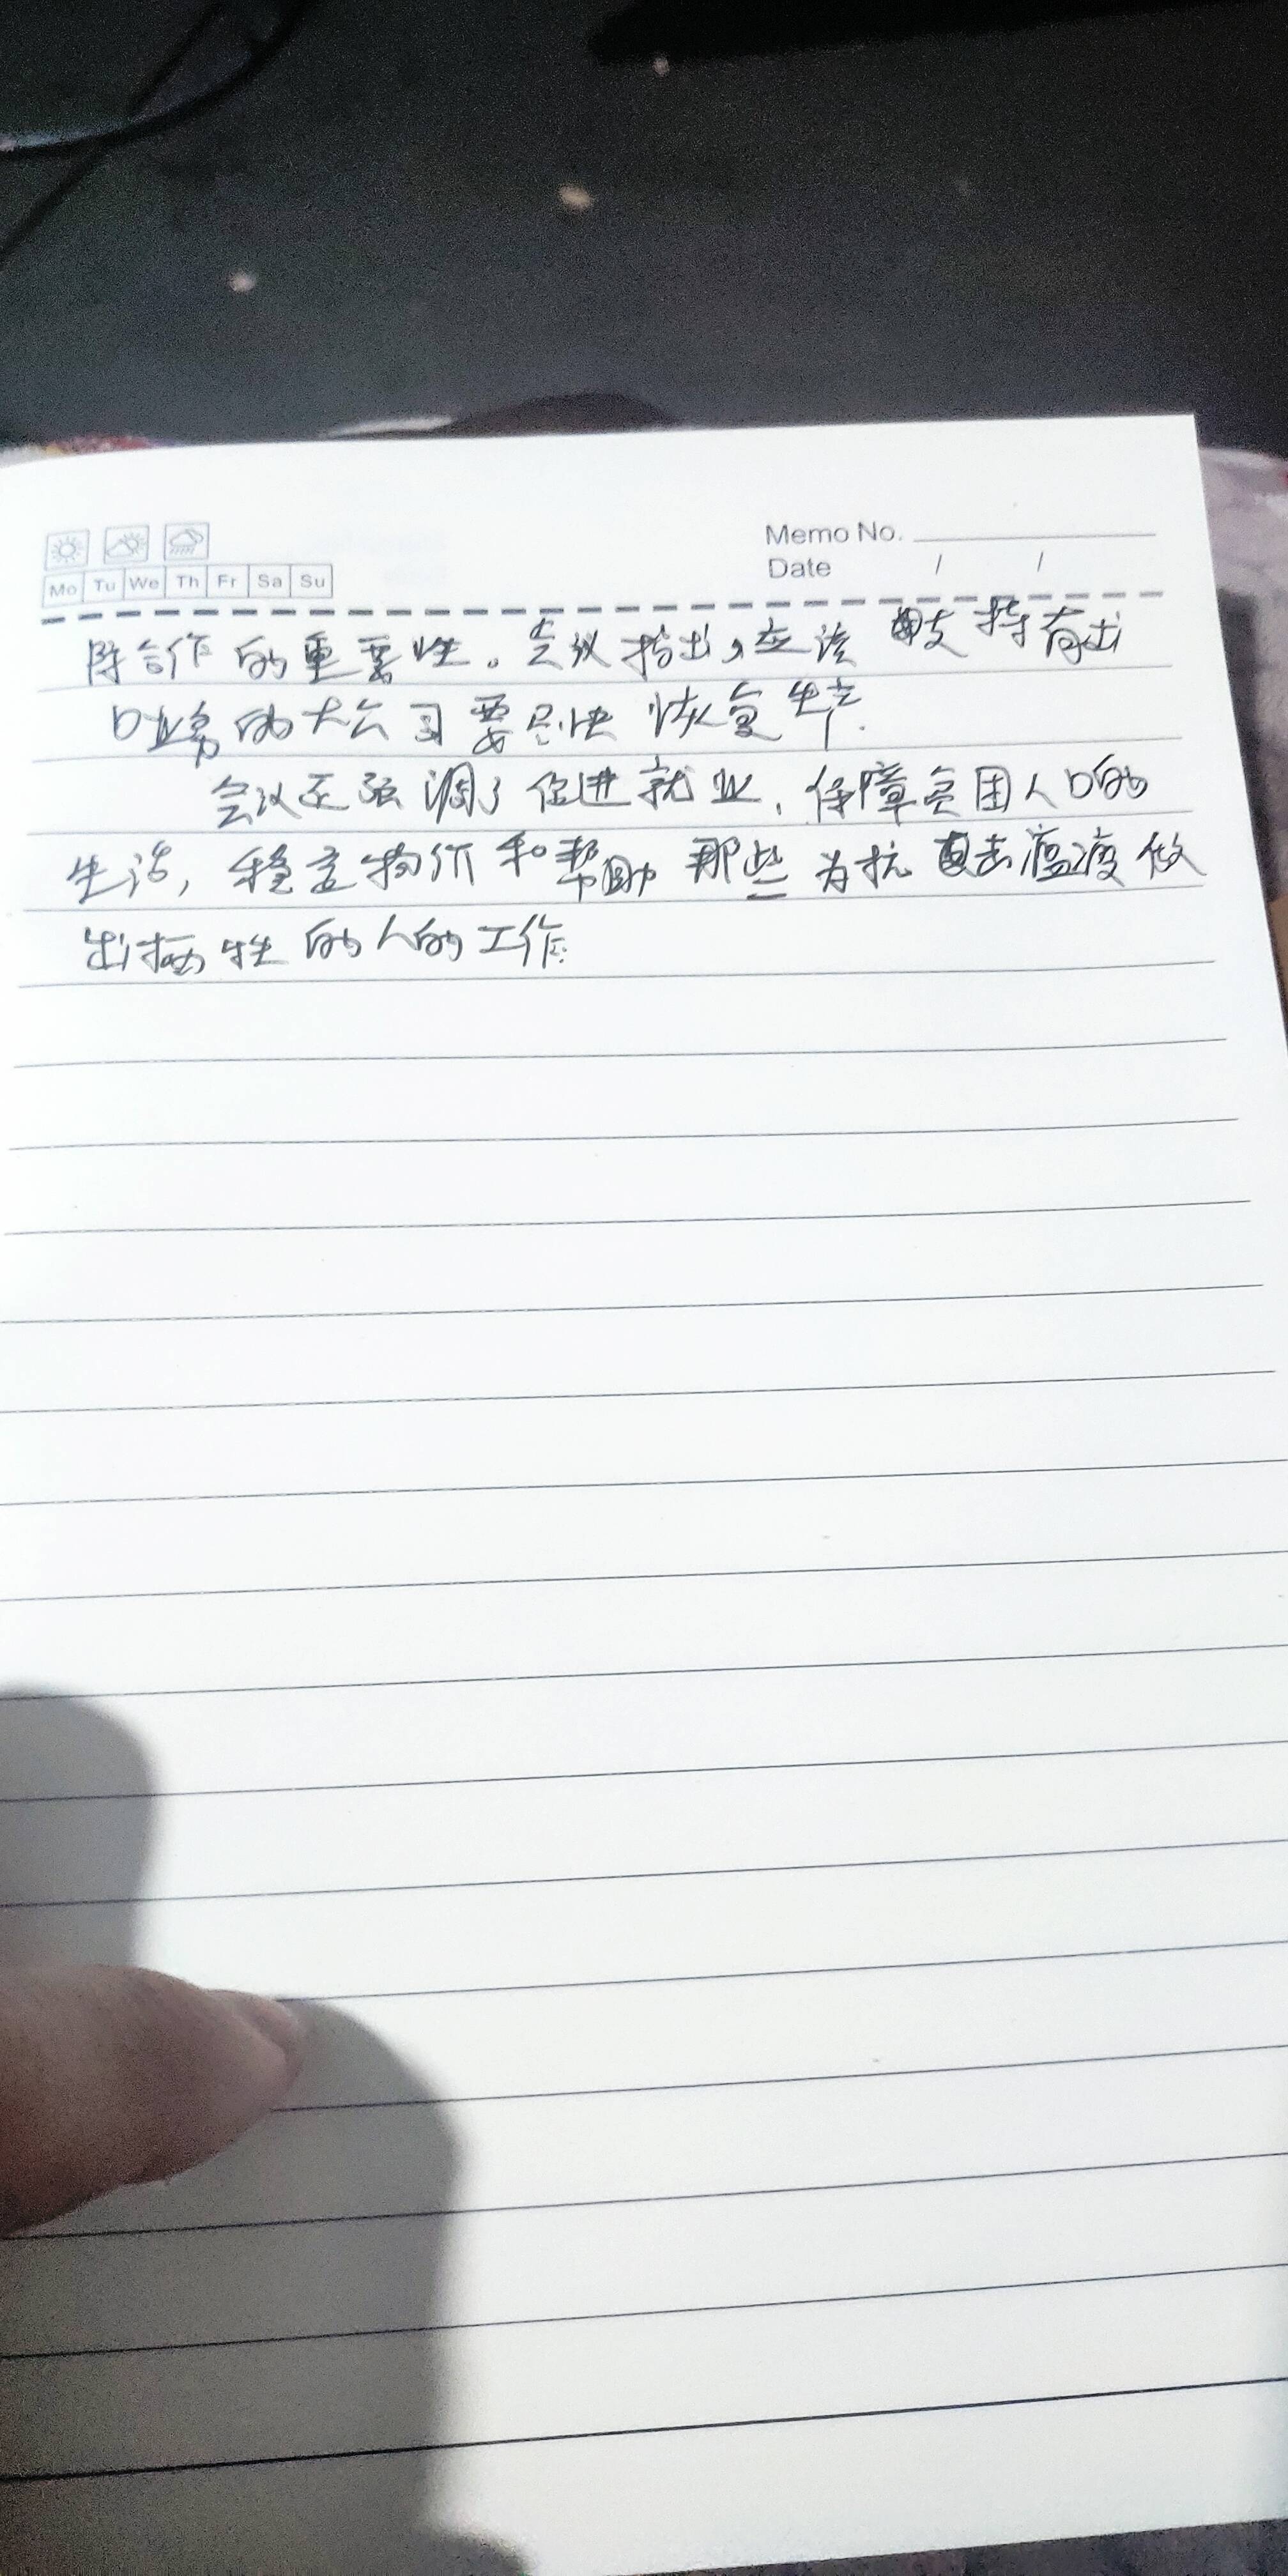 Memo No.
Date / /
Mo Tu We Th Fr Sa Su
际合作的重要性。会议指出,应该支持有出
口业务的大公司要尽快恢复生产.
会议还强调了促进就业,保障贫困人口的
生活,稳定物价和帮助那些为抗击瘟疫做
出牺牲的人的工作.